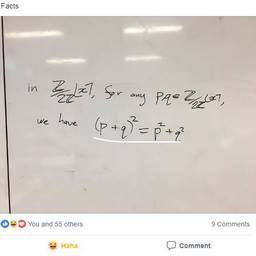 Facts
in ℤ/2ℤ[x], for any p,q ∈ ℤ/2ℤ[x],
we have (p+q)² = p² + q²
You and 55 others
9 Comments
Haha
Comment